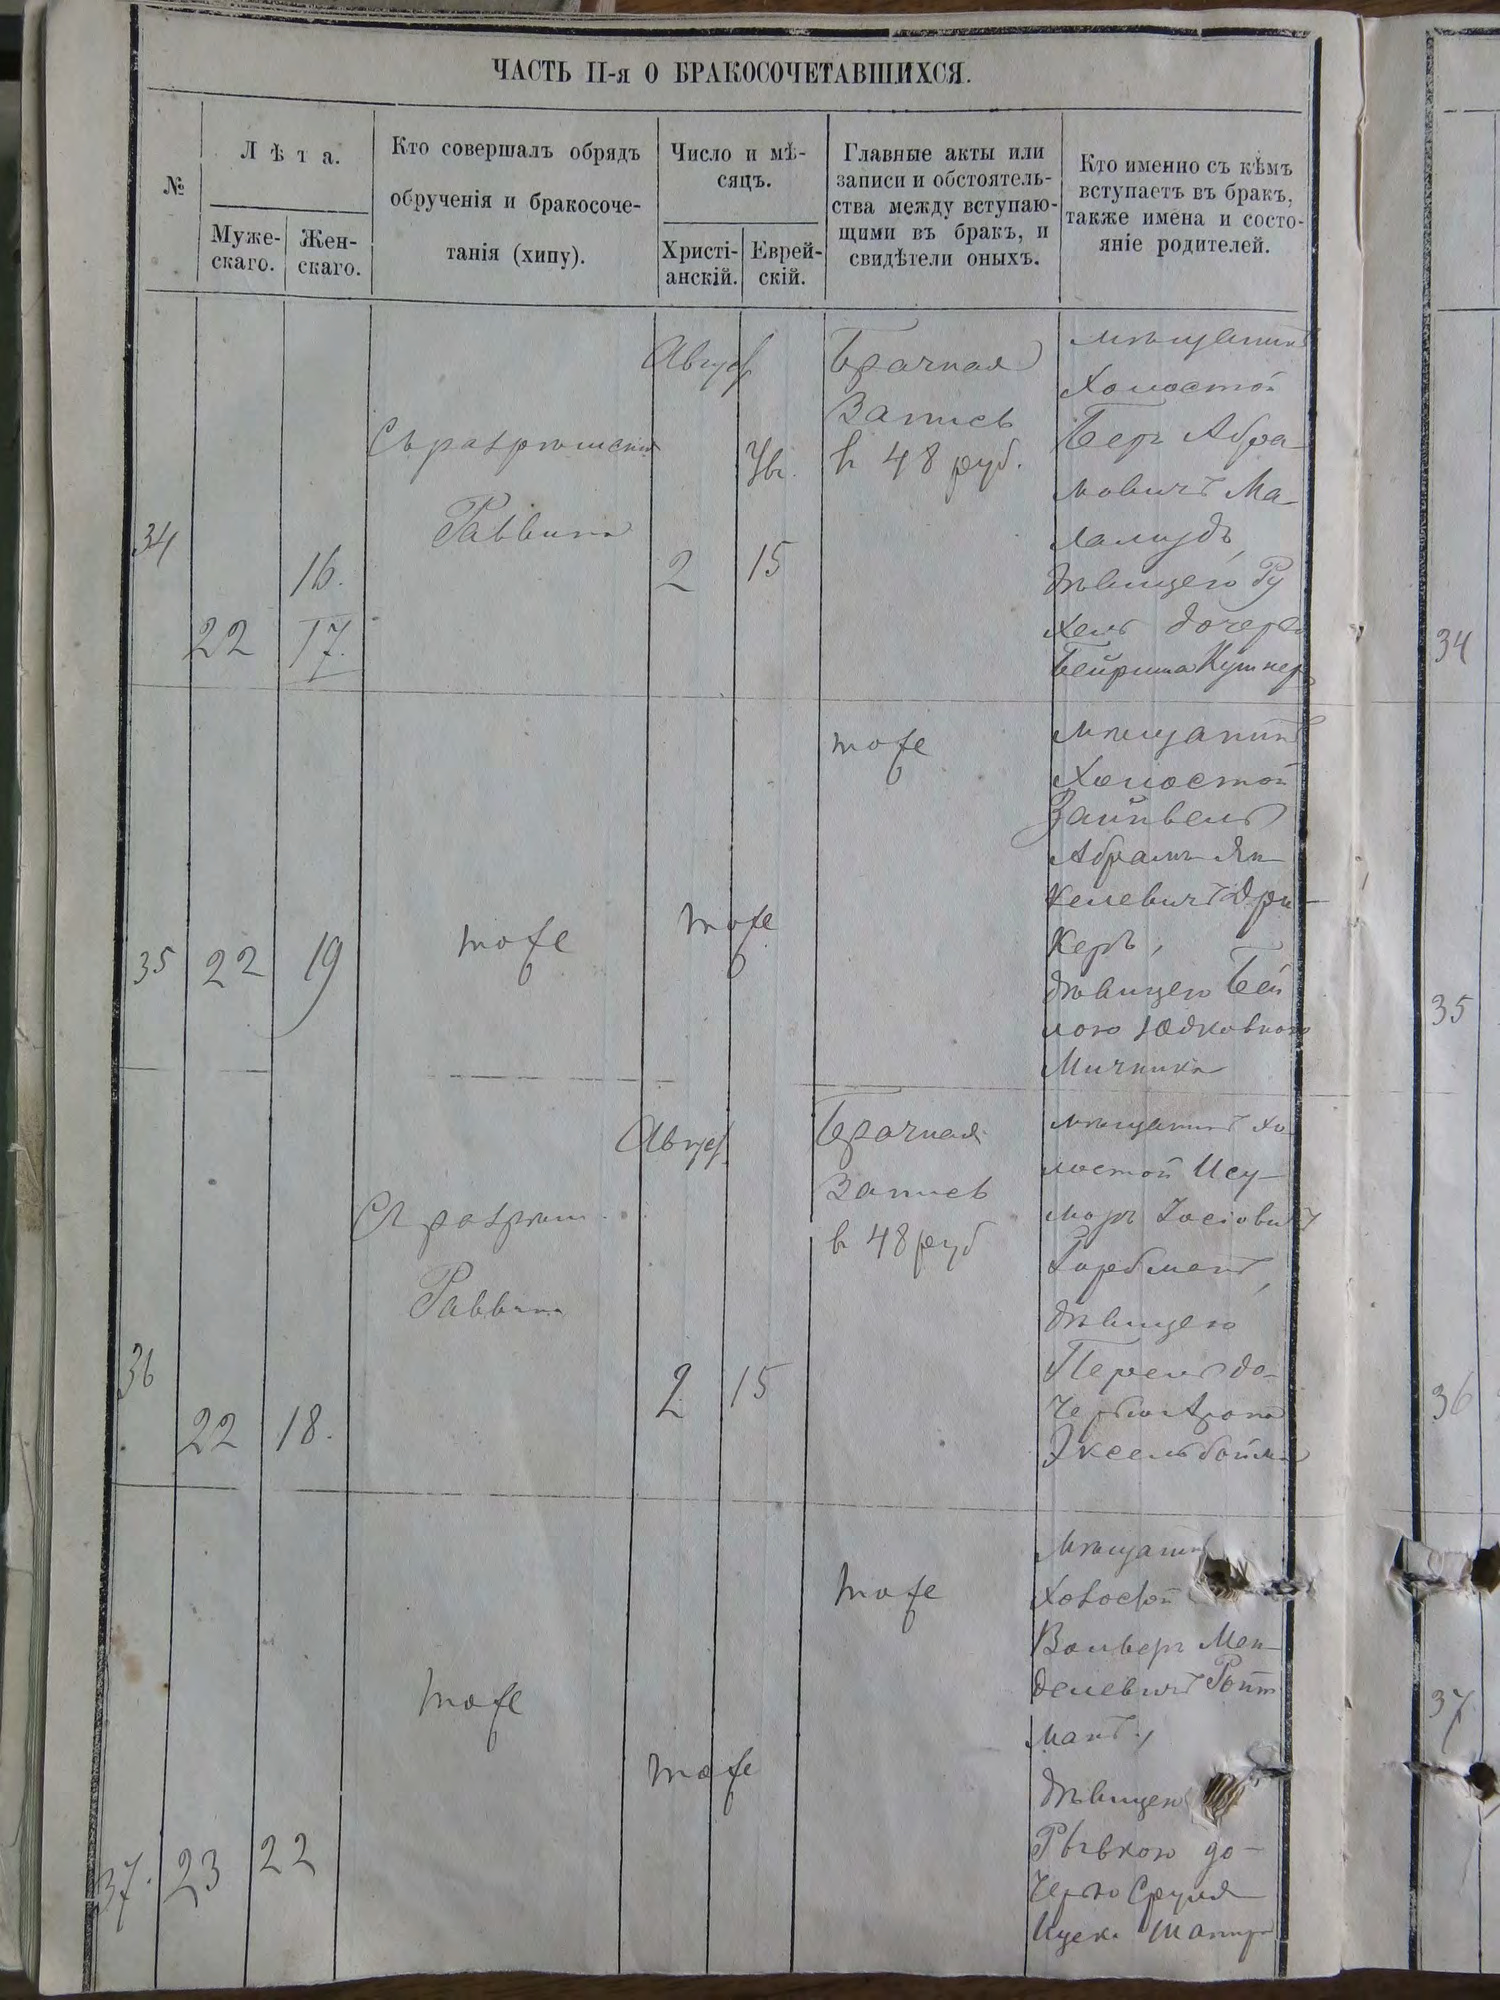 ЧАСТЬ II-я О БРАКОСОЧЕТАВШИХСЯ.
№
Лѣта.
Муже-
скаго.
Жен-
скаго.
Кто совершалъ обрядъ
обрученія и бракосоче-
танія (хипу).
Число и мѣ-
сяцъ.
Христі-
анскій.
Еврей-
скій.
Главные акты или
записи и обстоятель-
ства между вступаю-
щими въ бракъ, и
свидѣтели оныхъ.
Кто именно съ кѣмъ
вступаетъ въ бракъ,
также имена и состо-
яніе родителей.
34
22
16.
17.
Съ разрѣшенія
Раввина
Август
2
15
Брачная
Запись
в 48 руб.
мѣщанинъ
Холостой
Беръ Абра-
мовичъ Ма-
ламудъ,
дѣвицею Ру
хель дочерью
Бейриша Кушнер
35
22
19
тоже
тоже
тоже
мѣщанинъ
Холостой
Зайнвель
Абрамъ Ян-
келевичъ Дри-
керъ,
дѣвицею Бей
лою Юдковною
Мичника
36
22
18.
Съ разрѣш.
Раввина
Август
2
15
Брачная
Запись
в 48 руб
мѣщанинъ хо-
лостой
дѣвицею
Перель до-
черью Арона
37.
23
22
тоже
тоже
тоже
мѣщанинъ
Холостой
Вольверъ Мен-
делевичъ Ройт
манъ,
дѣвицею
Рывкою до-
черью Сруля
Ицека Шапир
34
35
36
37